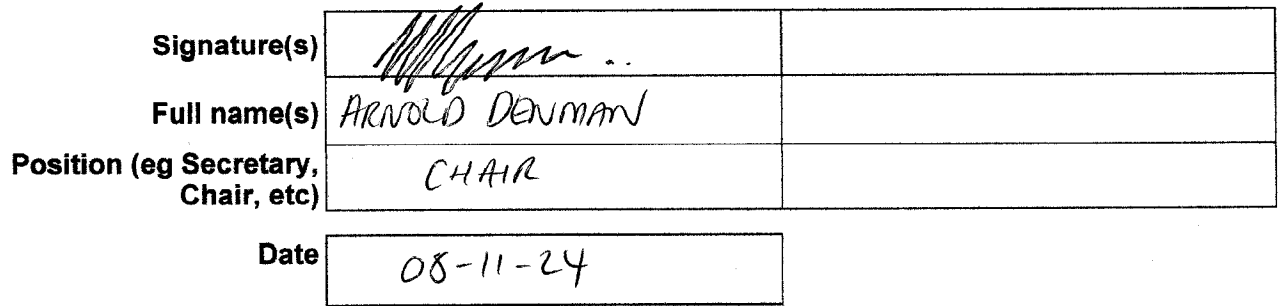 Signature(s)
Full name(s) ARNOLD DENMAN
Position (eg Secretary, CHAIR
Chair, etc)
Date 08-11-24